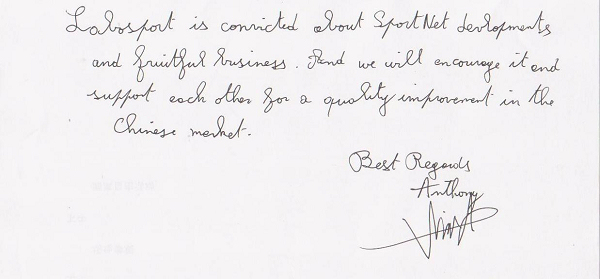 Labosport is convicted about SportNet devlopments
and fruitful business. And we will encourage it and
support each other for a quality improvement in the
Chinese market.
Best Regards
Anthony